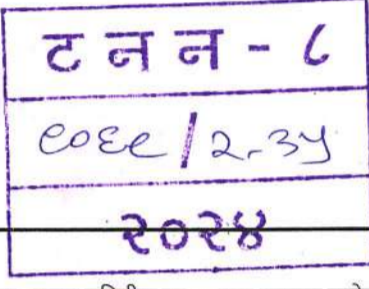 ट न न - ८
९०६९/२-३५
२०२४